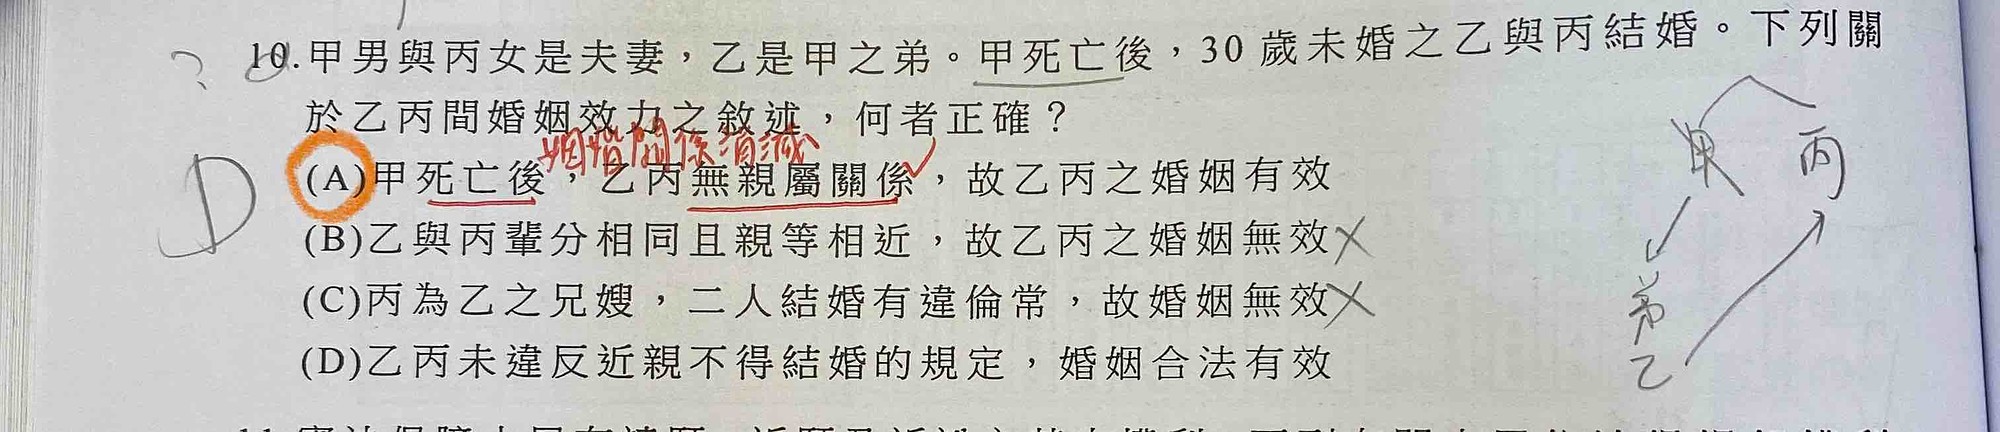 ? 10.甲男與丙女是夫妻，乙是甲之弟。甲死亡後，30歲未婚之乙與丙結婚。下列關
於乙丙間婚姻效力之敘述，何者正確？
姻婚關係消滅
D (A)甲死亡後，乙丙無親屬關係，故乙丙之婚姻有效
(B)乙與丙輩分相同且親等相近，故乙丙之婚姻無效
(C)丙為乙之兄嫂，二人結婚有違倫常，故婚姻無效
(D)乙丙未違反近親不得結婚的規定，婚姻合法有效
甲 丙
弟
乙